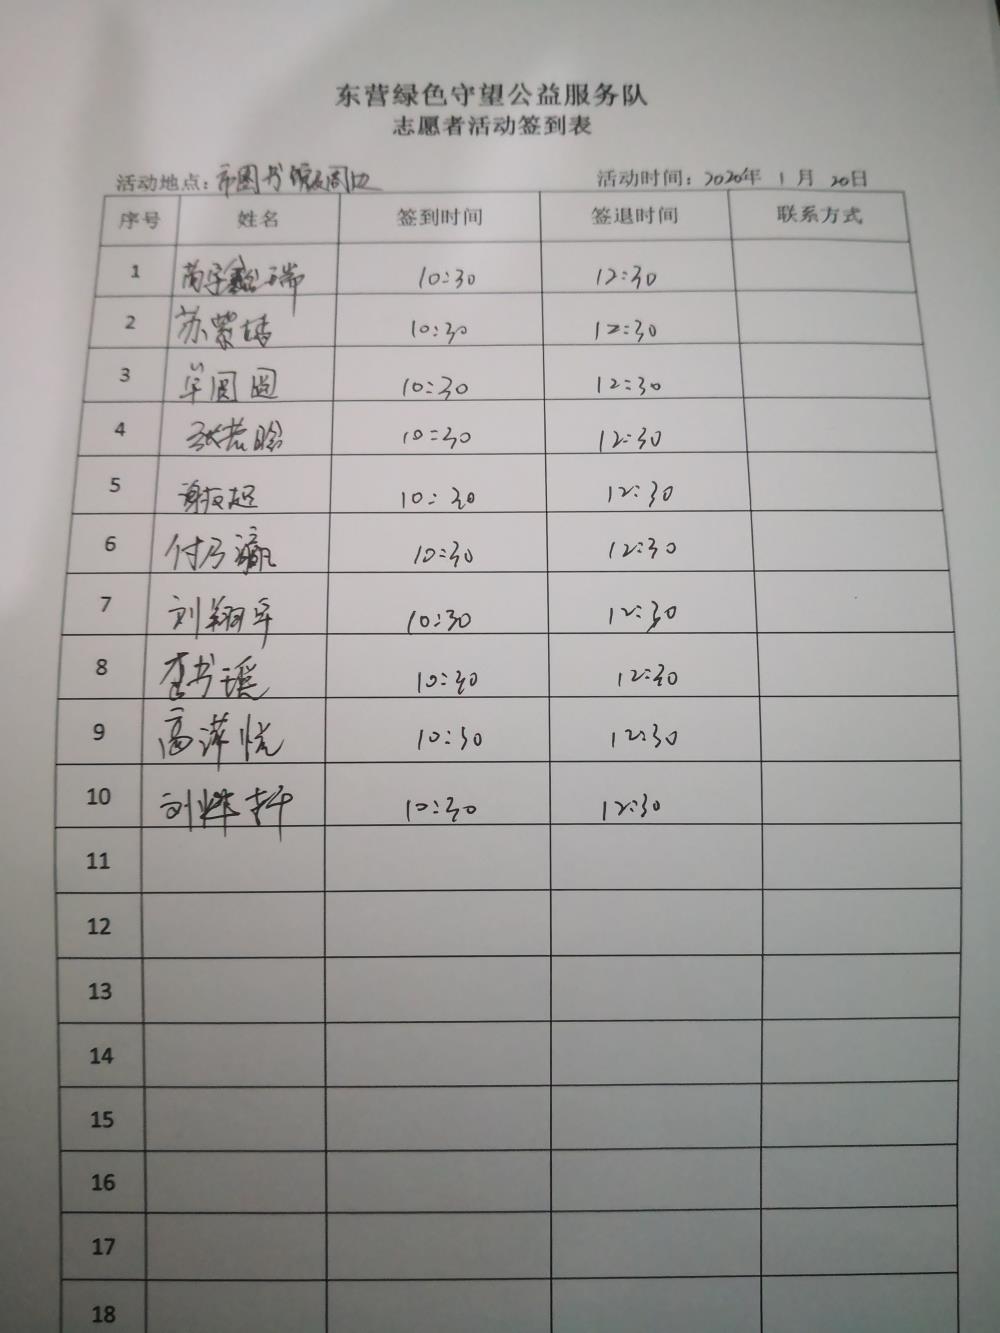 东营绿色守望公益服务队
志愿者活动签到表
活动地点：市图书馆及周边 活动时间：2020年 1月 20日
序号 姓名 签到时间 签退时间 联系方式
1 10:30 12:30
2 苏紫 10:30 12:30
3 单圆圆 10:30 12:30
4 张 晗 10:30 12:30
5 谢 超 10:30 12:30
6 付乃瀛 10:30 12:30
7 刘翔宇 10:30 12:30
8 李书瑶 10:30 12:30
9 高萍悦 10:30 12:30
10 刘 轩 10:30 12:30
11
12
13
14
15
16
17
18